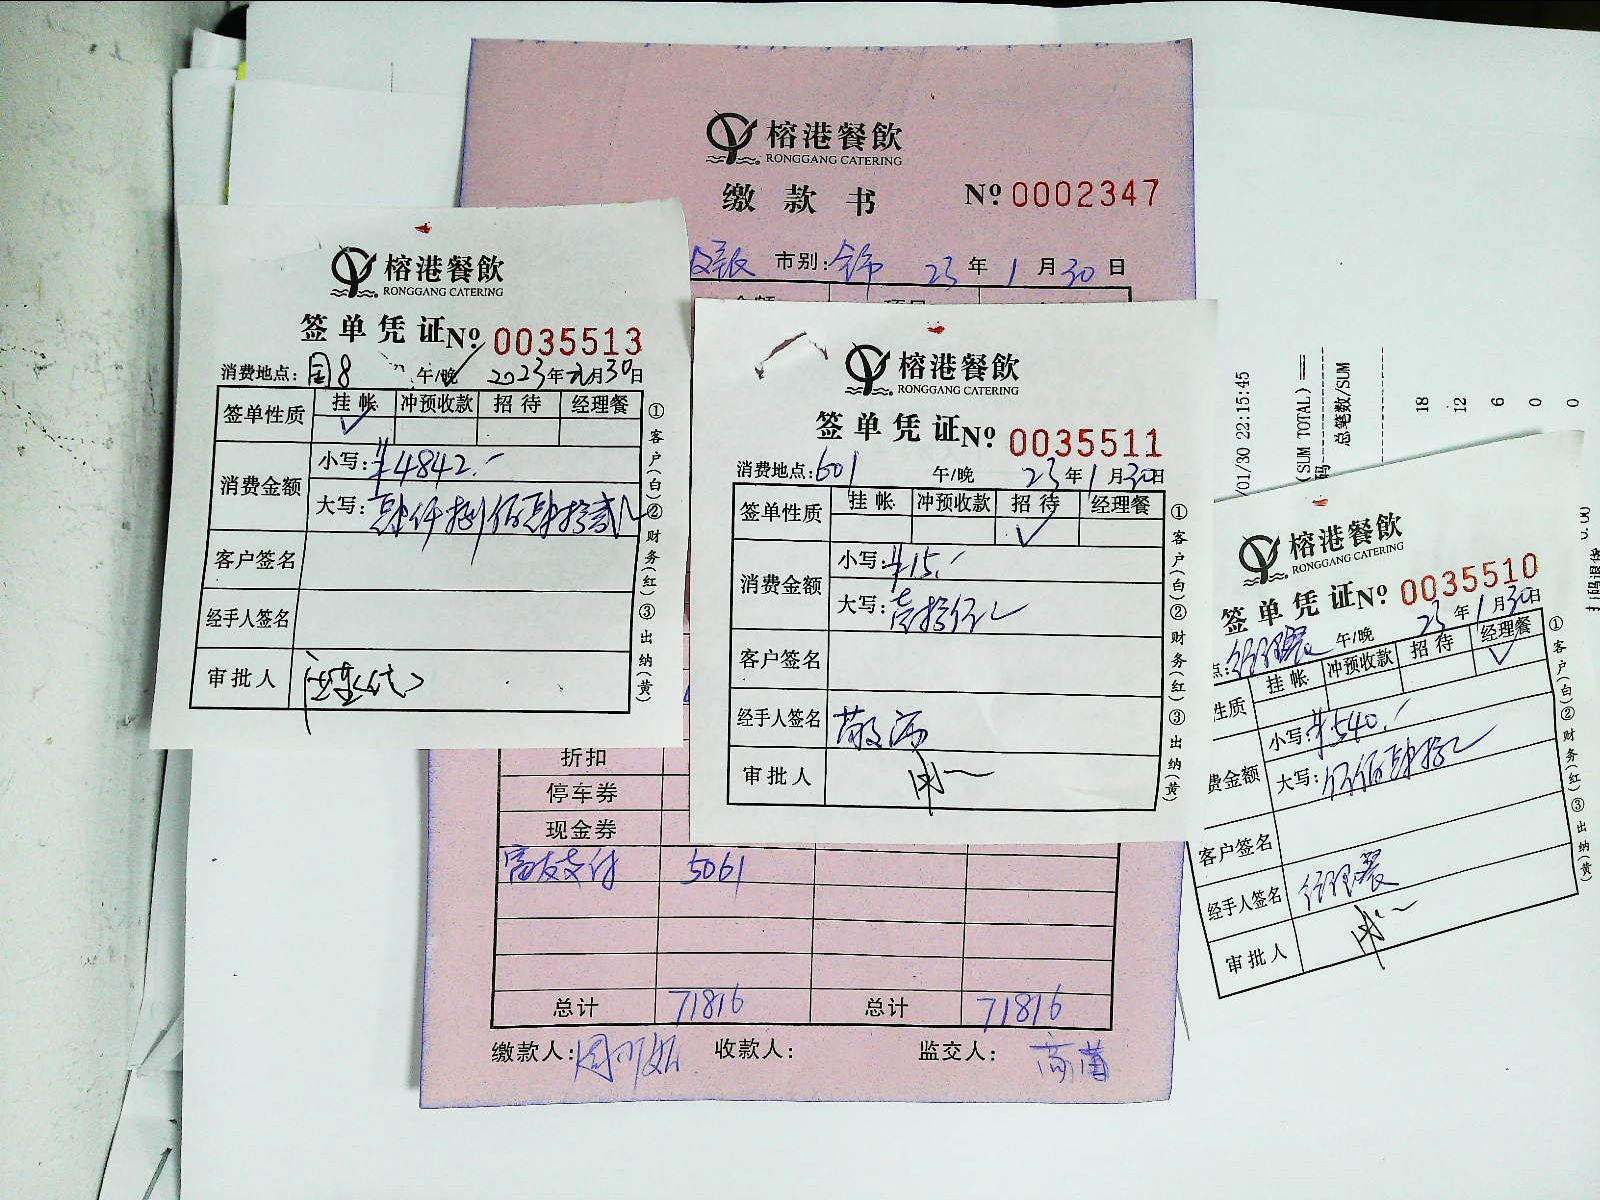 榕港餐飲
RONGGANG CATERING
缴款书 № 0002347
市别: 23年1月30日
折扣
停车券
现金券
支付 5061
总计 71816 总计 71816
缴款人: 收款人: 监交人:
榕港餐飲
RONGGANG CATERING
签单凭证 № 0035513
消费地点: 8 午/晚 2023年元月30日
签单性质 挂帐 冲预收款 招待 经理餐
✓
消费金额 小写: ¥4842.-
大写: 肆仟捌佰肆拾贰元
客户签名
经手人签名
审批人
①客户(白)②财务(红)③出纳(黄)
榕港餐飲
RONGGANG CATERING
签单凭证 № 0035511
消费地点: 601 午/晚 23年1月30日
签单性质 挂帐 冲预收款 招待 经理餐
✓
消费金额 小写: ¥15.-
大写: 壹拾伍元
客户签名
经手人签名
审批人
①客户(白)②财务(红)③出纳(黄)
榕港餐飲
RONGGANG CATERING
签单凭证 № 0035510
点: 经理餐 午/晚 23年1月30日
性质 挂帐 冲预收款 招待 经理餐
✓
费金额 小写: ¥540.-
大写: 伍佰肆拾元
客户签名
经手人签名 经理餐
审批人
①客户(白)②财务(红)③出纳(黄)
/01/30 22:15:45
(SUM TOTAL)
总笔数/SUM
18
12
6
0
0